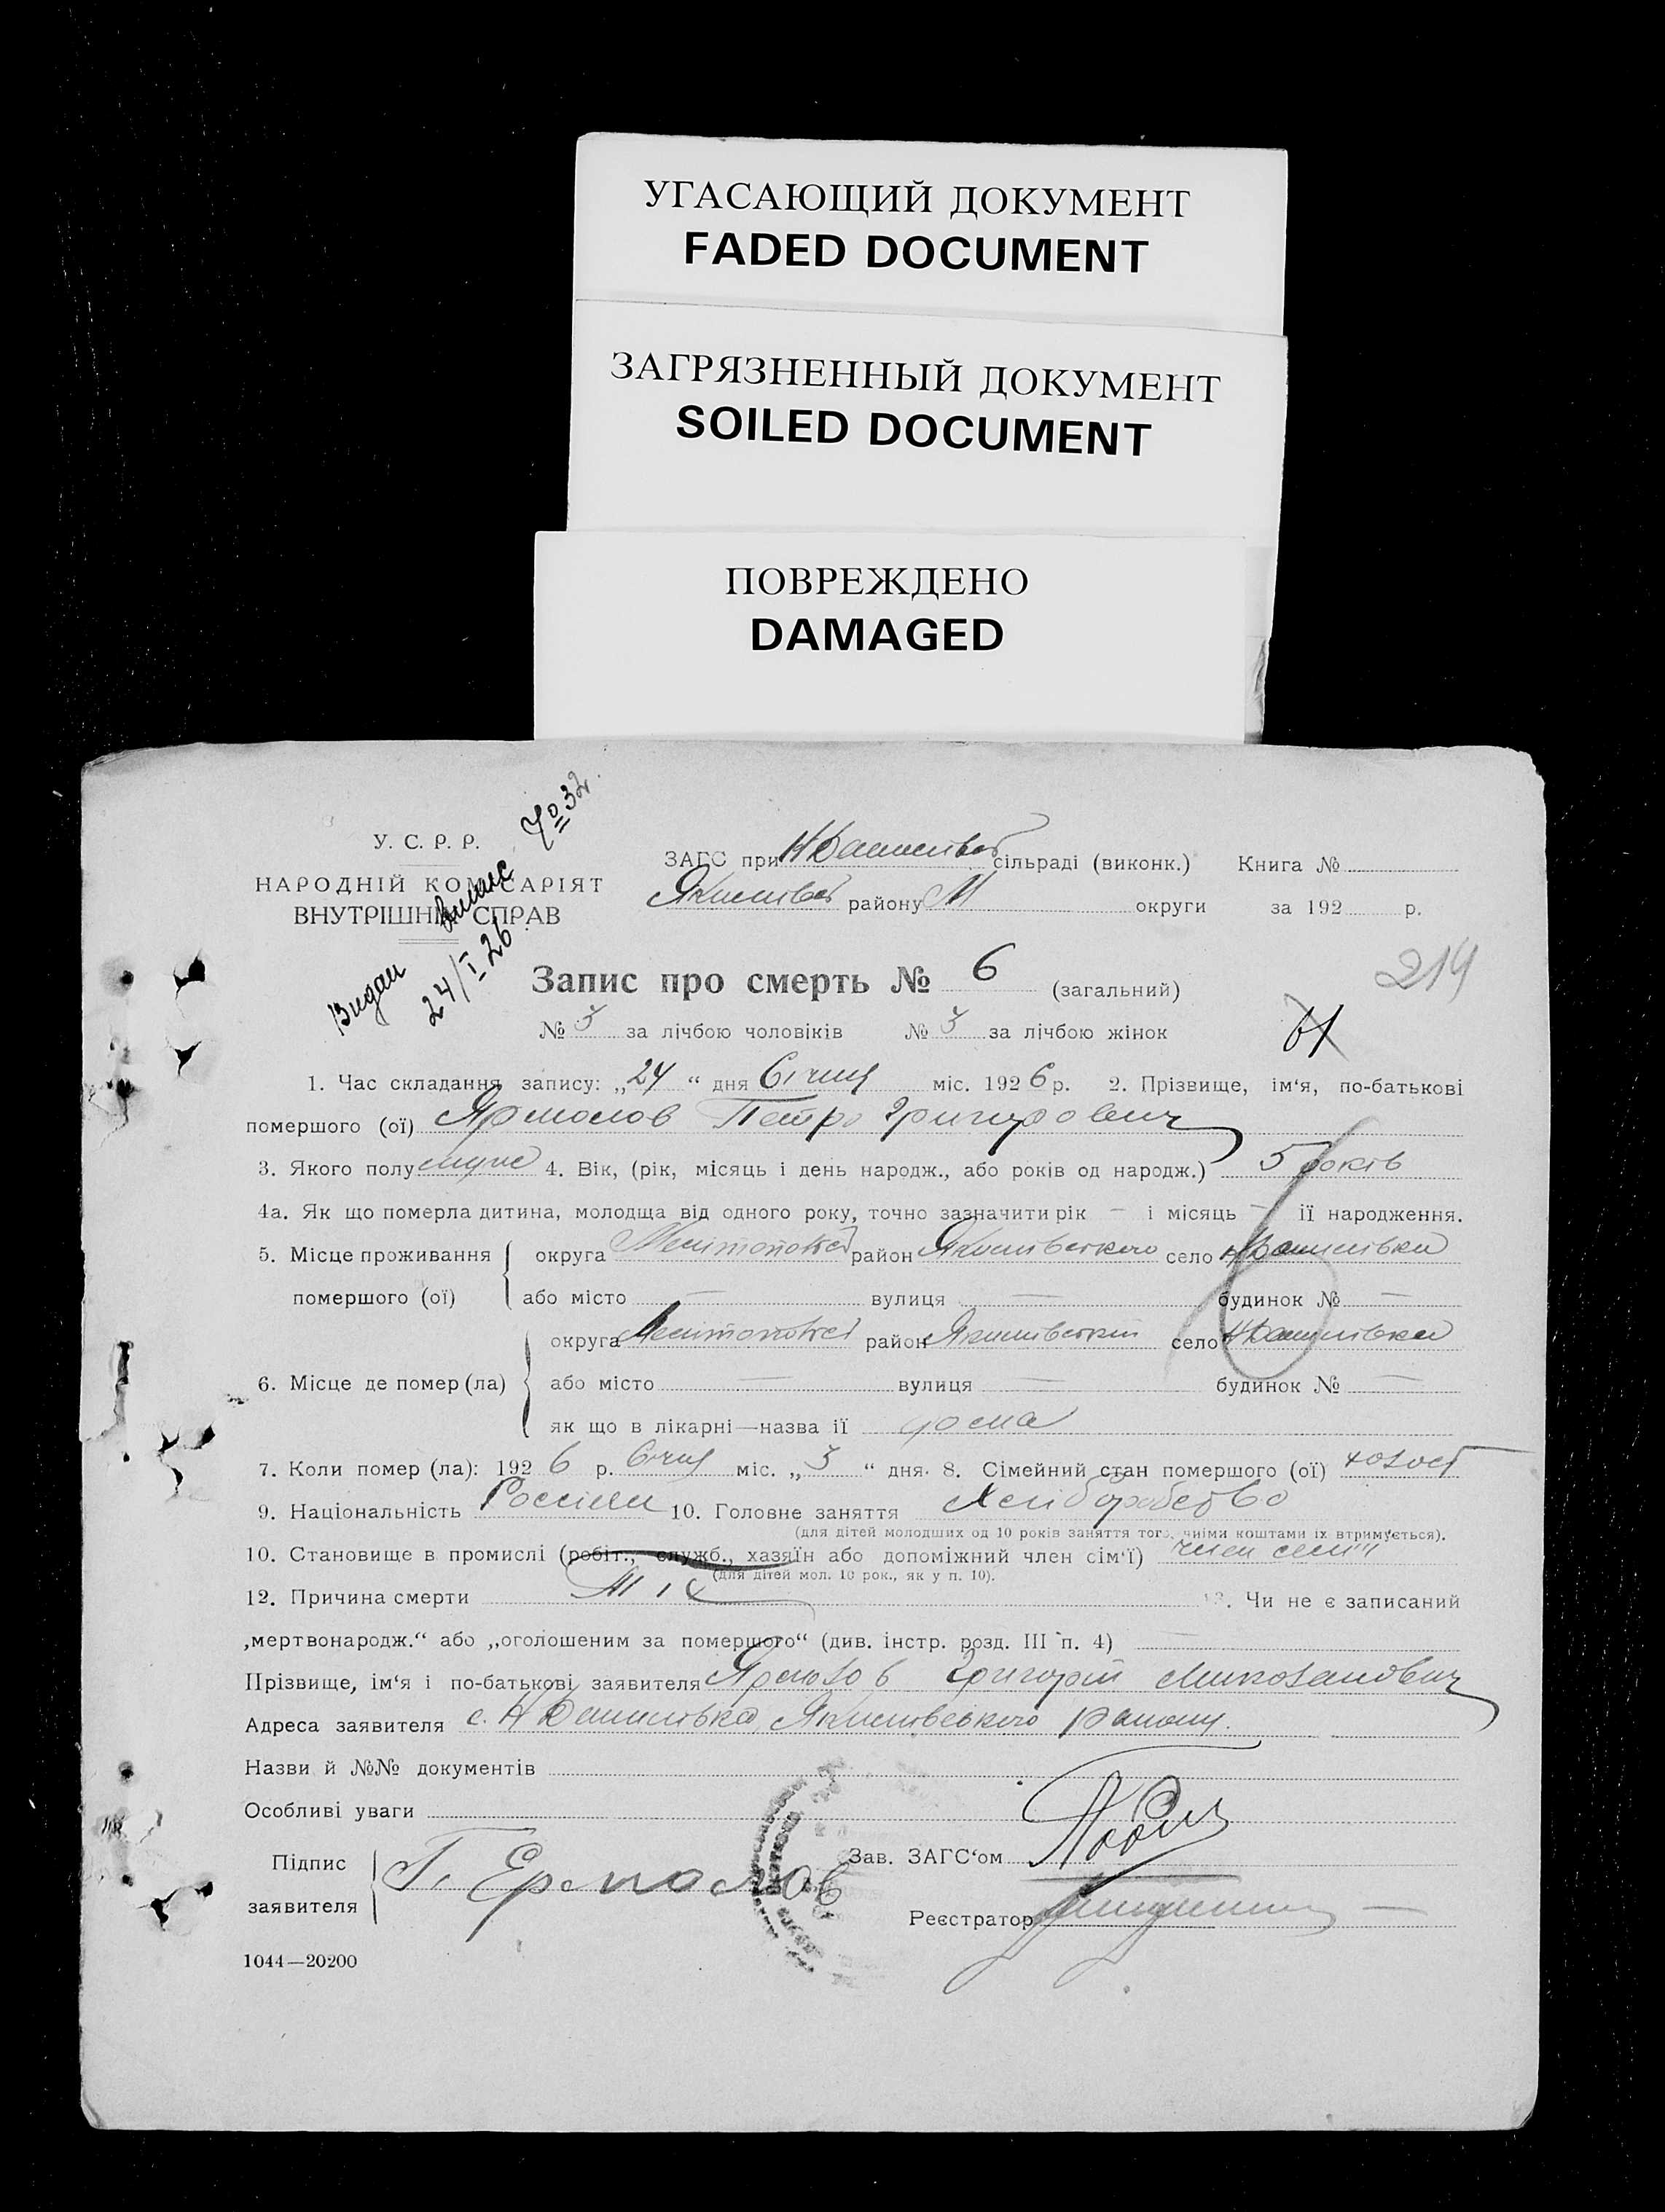 УГАСАЮЩИЙ ДОКУМЕНТ
FADED DOCUMENT
ЗАГРЯЗНЕННЫЙ ДОКУМЕНТ
SOILED DOCUMENT
ПОВРЕЖДЕНО
DAMAGED
У. С. Р. Р.
НАРОДНІЙ КОМІСАРІЯТ
ВНУТРІШНІХ СПРАВ
Видан
24/I 26
№ 32
ЗАГС при сільраді (виконк.) Книга №
району М округи за 192 р.
Запис про смерть № 6 (загальний)
214
№ 3 за лічбою чоловіків № 3 за лічбою жінок
1. Час складання запису: „24“ дня Січня міс. 1926 р. 2. Прізвище, ім‘я, по-батькові
помершого (ої) Ярмолов Петро Григорович
3. Якого полу муже 4. Вік, (рік, місяць і день народж., або років од народж.) 5 років
4а. Як що померла дитина, молодща від одного року, точно зазначити рік — і місяць — її народження.
5. Місце проживання округа район Якимівського село Н Данилівки
помершого (ої) або місто — вулиця — будинок № —
округа район Якимівський село Н Данилівка
6. Місце де помер (ла) або місто — вулиця — будинок № —
як що в лікарні—назва її дома
7. Коли помер (ла): 1926 р. Січня міс. „3“ дня. 8. Сімейний стан помершого (ої) холост
9. Національність 10. Головне заняття Хліборобство
(для дітей молодших од 10 років заняття того, чиїми коштами їх втримується).
10. Становище в промислі (робіт., служб., хазяїн або допоміжний член сім‘ї) член сем'ї
(для дітей мол. 10 рок., як у п. 10).
12. Причина смерти 13. Чи не є записаний
„мертвонародж.“ або „оголошеним за помершого“ (див. інстр. розд. III п. 4)
Прізвище, ім‘я і по-батькові заявителя Ярмолов Григорій Миколайович
Адреса заявителя с. Н Данилівка, Якимівського району.
Назви й №№ документів
Особливі уваги
Підпис
заявителя Г. Ермолов
Зав. ЗАГС‘ом
Реєстратор
1044—20200